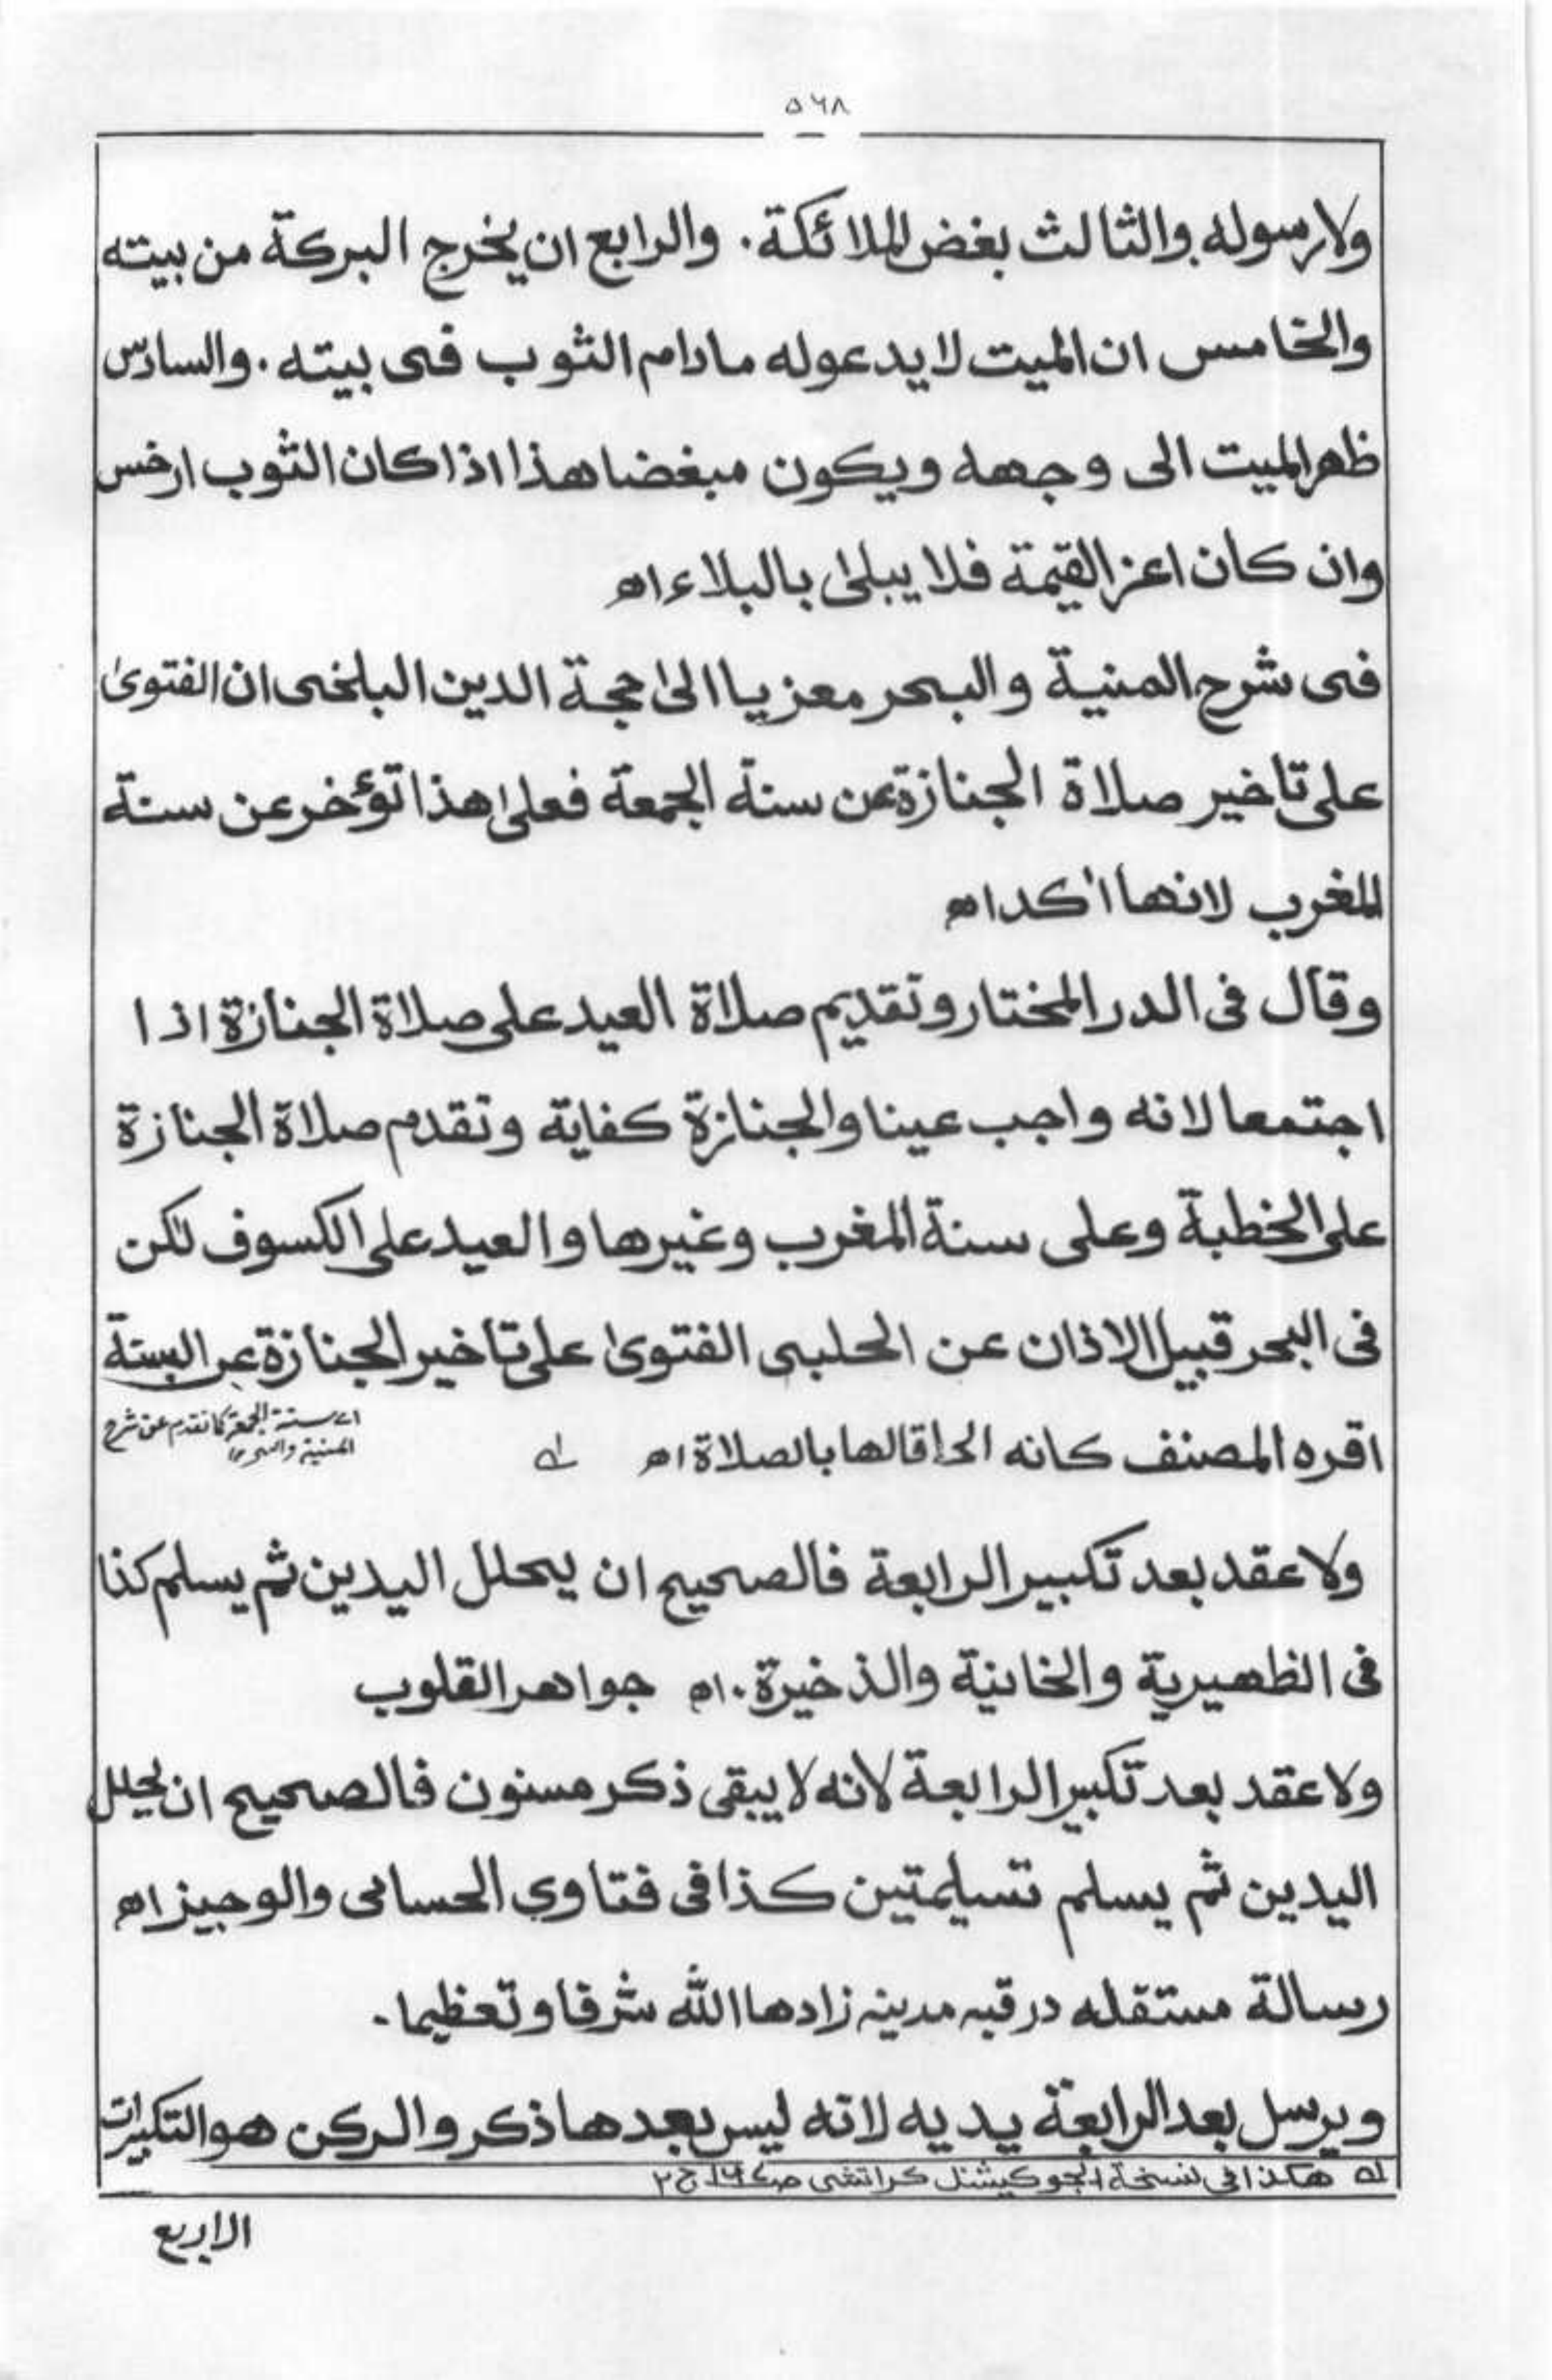 ۵۶۸
ولا رسوله والثالث بغض الملائكة. والرابع ان يخرج البركة من بيته
والخامس ان الميت لا يدعو له مادام الثوب فى بيته. والسادس
ظهر الميت الى وجهه ويكون مبغضا هذا اذا كان الثوب ارخس
وان كان اعز القيمة فلا يبلىٰ بالبلاء اھ
فى شرح المنية والبحر معزيا الىٰ حجة الدين البلخى ان الفتوىٰ
على تاخير صلاة الجنازة عن سنة الجمعة فعلىٰ هذا تؤخر عن سنة
المغرب لانها اٰكد اھ
وقال فى الدر المختار وتقديم صلاة العيد على صلاة الجنازة اذا
اجتمعا لانه واجب عينا والجنازة كفاية وتقدم صلاة الجنازة
على الخطبة وعلى سنة المغرب وغيرها والعيد على الكسوف لكن
فى البحر قبيل الاذان عن الحلبى الفتوىٰ على تاخير الجنازة عن السنة
اقره المصنف كانه الحاقا لها بالصلاة اھ لے
اے سنة الجمعة كما تقدم عن شرح
المنية والبحر ١٢
ولا عقد بعد تكبير الرابعة فالصحيح ان يحلل اليدين ثم يسلم كذا
فى الظهيرية والخانية والذخيرة. اھ جواهر القلوب
ولا عقد بعد تكبير الرابعة لانه لا يبقى ذكر مسنون فالصحيح ان يحلل
اليدين ثم يسلم تسليمتين كذا فى فتاوي الحسامى والوجيز اھ
رسالة مستقله در قبه مدينه زادها الله شرفا وتعظيما.
ويرسل بعد الرابعة يديه لانه ليس بعدها ذكر والركن هو التكبيرات
لے هكذا فى نسخة ايجوكيشنل كراتشى ج ٢
الاربع